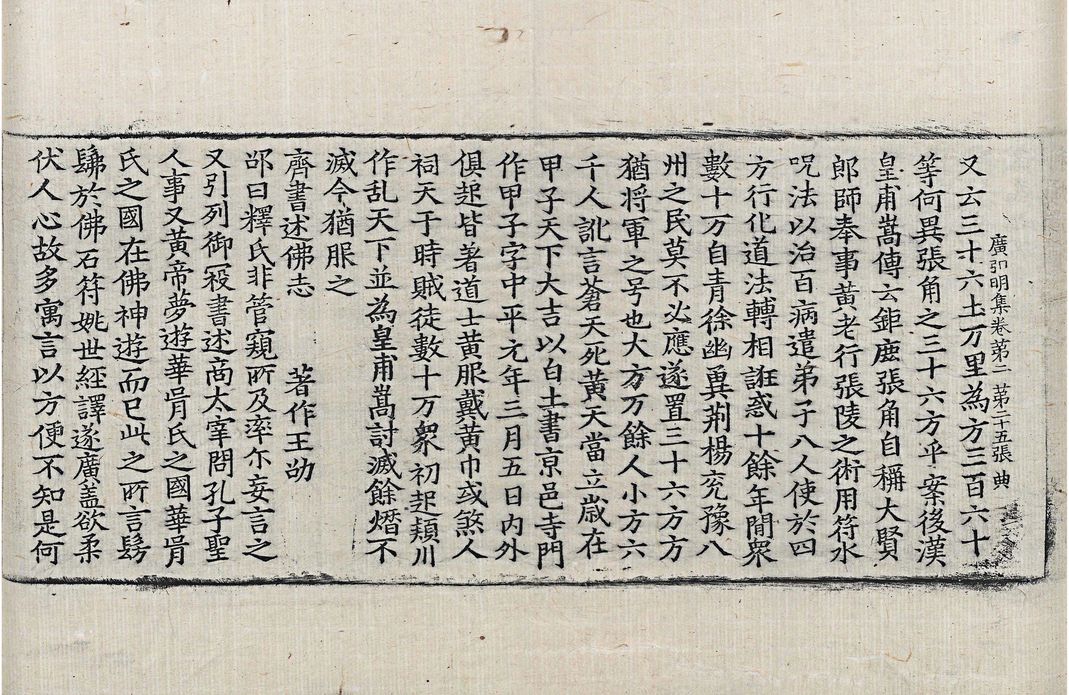 廣弘明集卷第二 第二十五張 典
又云三十六土万里為方三百六十
等何異張角之三十六方乎案後漢
皇甫嵩傳云鉅鹿張角自稱大賢
郎師奉事黃老行張陵之術用符水
呪法以治百病遣弟子八人使於四
方行化道法轉相誑惑十餘年間衆
數十万自青徐幽冀荊楊兖豫八
州之民莫不必應遂置三十六方方
猶将軍之号也大方万餘人小方六
千人訛言蒼天死黃天當立歲在
甲子天下大吉以白土書京邑寺門
作甲子字中平元年三月五日內外
俱起皆著道士黃服戴黃巾或煞人
祠天于時賊徒數十万衆初起頴川
作乱天下並為皇甫嵩討滅餘熸不
滅今猶服之
齊書述佛志 著作王劭
邵曰釋氏非管窺所及率尒妄言之
又引列御寇書述商太宰問孔子聖
人事又黃帝夢遊華胥氏之國華胥
氏之國在佛神遊而已此之所言髣
髴於佛石符姚世經譯遂廣盖欲柔
伏人心故多寓言以方便不知是何